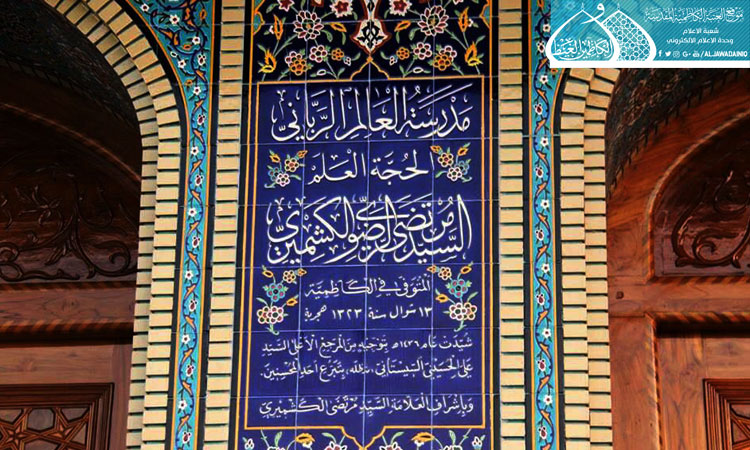 موقع العتبة الكاظمية المقدسة
شعبة الاعلام
وحدة الاعلام الالكتروني
/ALJAWADAINIQ
مدرسة العالم الرباني
الحجة العلم
السيد مرتضى الرضوي الكشميري
المتوفى في الكاظمية
١٣ شوال سنة ١٣٢٣ هجرية
شيدت عام ١٤٣٦هـ بتوجيه من المرجع الاعلى السيد
علي الحسيني السيستاني بتبرع احد المحسنين
وباشراف العلامة السيد مرتضى الكشميري